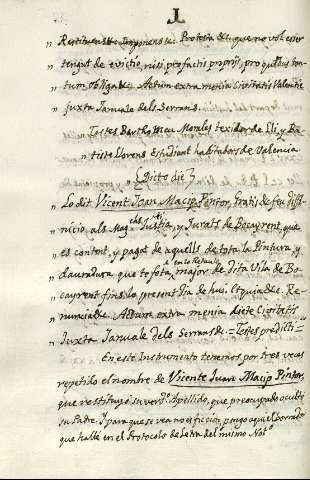 " Restituens &c. Imponens &c. Protesta &c. que no vol esser
" tengut de evictio, nisi pro factis propriis, pro quibus tan-
" tum obliga &c. Actum extra menia Civitatis Valentie
" juxta Januale dels Serrans.
" Testes Bartholomeu Morales texidor de Lli, y Ba-
" tiste Llorens estudiant habitadors de Valencia.
Dicto die
" Lo dit Vicent Joan Macip Pintor, Gratis &c. feu diffi-
" nicio als Mag.chs Justicia, y Jurats de Bocayrent, que
" es content, y pagat de aquells de tota la Pintura, y
" dauradura que te feta, en lo Retaule major de dita Vila de Bo-
" cayrent fins lo present dia de hui. Et quia &c. Re-
" nuncia &c. Actum extra menia dicte Civitatis
" Juxta Januale dels Serrans &c. = Testes predicti =
En este Instrumento tenemos por tres veces
repetido el nombre de Vicente Juan Macip Pintor,
que restituyó su verd.o Apellido, que preocupado ocultó
su Padre. Y para que se vea no es ficcion, pongo aqui el borrador
que hallé en el Protocolo de Letra del mismo Not.o